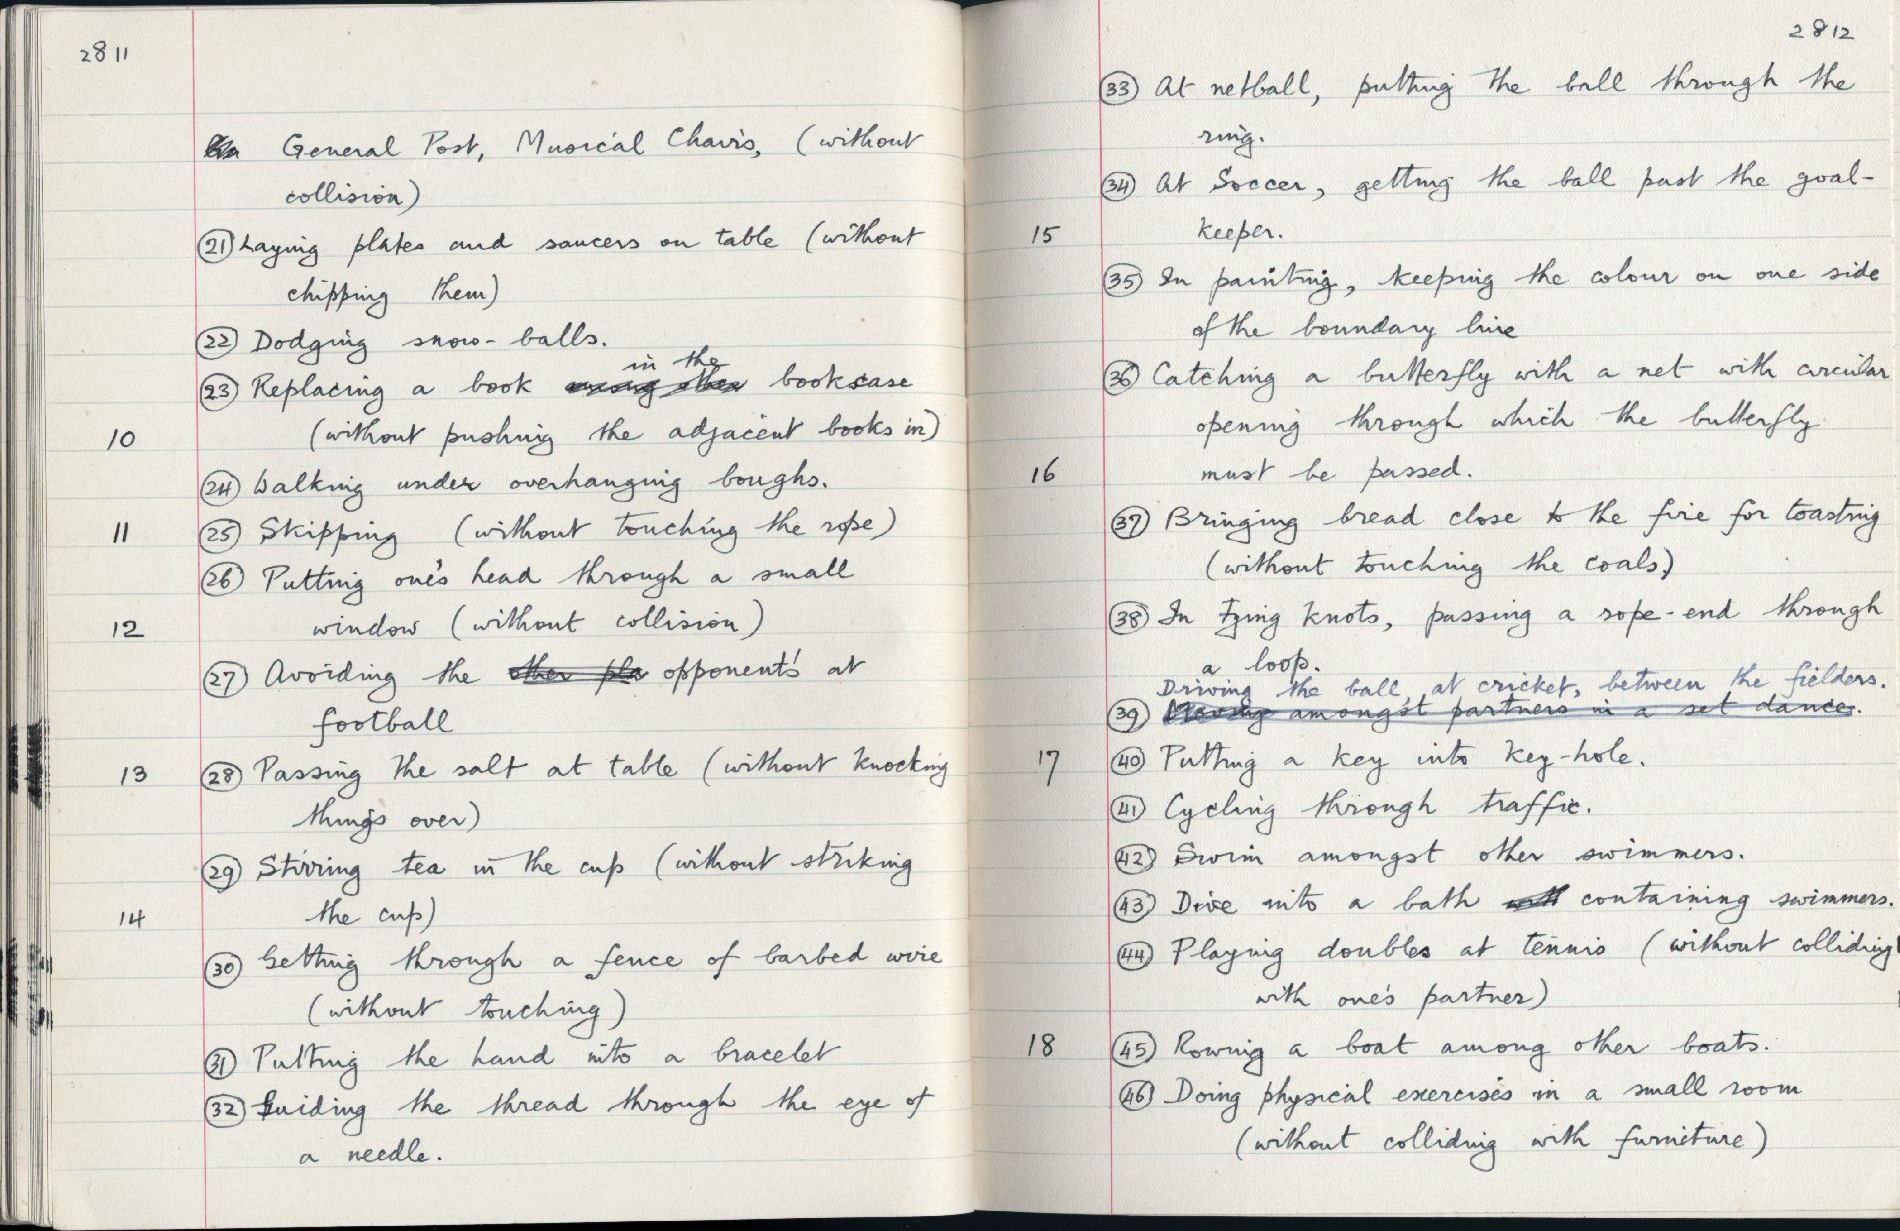 2811
General Post, Musical Chairs, (without
collision)
(21) Laying plates and saucers on table (without
chipping them)
(22) Dodging snow-balls.
in the
(23) Replacing a book among other bookcase
10 (without pushing the adjacent books in)
(24) Walking under overhanging boughs.
11 (25) Skipping (without touching the rope)
(26) Putting one's head through a small
12 window (without collision)
(27) Avoiding the other pla opponents' at
football
13 (28) Passing the salt at table (without knocking
things over)
(29) Stirring tea in the cup (without striking
14 the cup)
(30) Getting through a fence of barbed wire
(without touching)
(31) Putting the hand into a bracelet
(32) Guiding the thread through the eye of
a needle.
2812
(33) At netball, putting the ball through the
ring.
(34) At Soccer, getting the ball past the goal-
15 keeper.
(35) In painting, keeping the colour on one side
of the boundary line
(36) Catching a butterfly with a net with circular
opening through which the butterfly
16 must be passed.
(37) Bringing bread close to the fire for toasting
(without touching the coals)
(38) In tying knots, passing a rope-end through
a loop.
Driving the ball, at cricket, between the fielders.
(39) Moving amongst partners in a set dance.
17 (40) Putting a key into key-hole.
(41) Cycling through traffic.
(42) Swim amongst other swimmers.
(43) Dive into a bath with containing swimmers.
(44) Playing doubles at tennis (without colliding
with one's partner)
18 (45) Rowing a boat among other boats.
(46) Doing physical exercises in a small room
(without colliding with furniture)